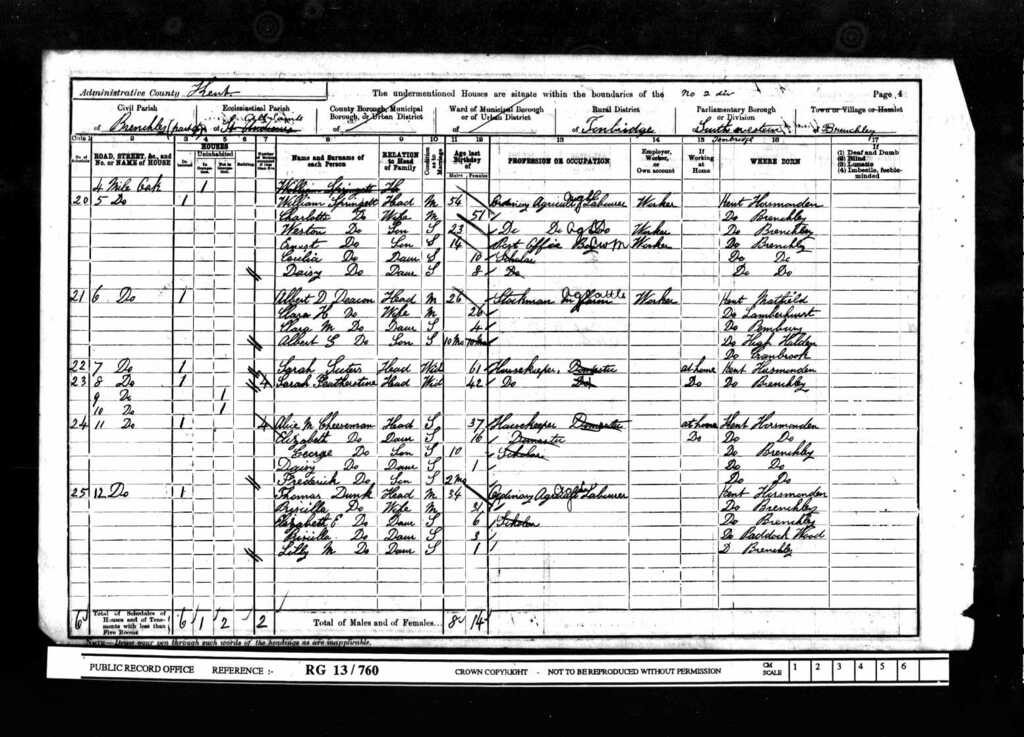 Administrative County Kent The undermentioned Houses are situate within the boundaries of the No 2 div Page 4
Civil Parish Ecclesiastical Parish County Borough, Municipal Borough, or Urban District Ward of Municipal Borough or of Urban District Rural District Parliamentary Borough or Division Town or Village or Hamlet
of Brenchley (part of) of of of of Tonbridge of South western of Brenchley
Tonbridge
Cols 1 2 3 4 5 6 7 8 9 10 11 12 13 14 15 16 17
HOUSES
Uninhabited
ROAD, STREET, &c., and No. or NAME of HOUSE Name and Surname of each Person RELATION to Head of Family Age last Birthday of PROFESSION OR OCCUPATION Employer, Worker, or Own account If Working at Home WHERE BORN If
(1) Deaf and Dumb
(2) Blind
(3) Lunatic
(4) Imbecile, feeble-minded
Males Females
4 Mile Oak 1 William Springett
20 5 Do 1 William Springett Head M 54 Ordinary Agricult Labourer Worker Kent Horsmonden
Charlotte Do Wife M 51 Do Brenchley
Weston Do Son S 23 Do Do Worker Do Brenchley
Ernest Do Son S 14 Post Office Boy Worker Do Brenchley
Cecilia Do Daur S 10 Scholar Do Do
Daisy Do Daur S 8 Do Do Do
21 6 Do 1 Albert D Deacon Head M 26 Stockman on farm Worker Kent Matfield
Clara H Do Wife M 26 Do Lamberhurst
Clara M Do Daur S 4 Do Pembury
Albert G Do Son S 10 Mo Do High Halden
Do Cranbrook
22 7 Do 1 Sarah Head Wid 61 Housekeeper, Domestic at home Kent Horsmonden
23 8 Do 1 4 Sarah Featherstone Head Wid 42 Do Do Do Do Brenchley
9 Do 1
10 Do 1
24 11 Do 1 4 Alice M Cheeseman Head S 37 Housekeeper Domestic at home Kent Horsmonden
Elizabeth Do Daur S 16 Domestic Do Do Do
George Do Son S 10 Scholar Do Brenchley
Daisy Do Daur S 1 Do Do
Frederick Do Son S 2 Mo Do Do
25 12 Do 1 Thomas Dunk Head M 34 Ordinary Agricult Labourer Kent Horsmonden
Priscilla Do Wife M 31 Do Brenchley
Elizabeth E Do Daur S 6 Scholar Do Brenchley
Priscilla Do Daur S 3 Do Paddock Wood
Lilly M Do Daur S 1 D Brenchley
6 Total of Schedules of Houses and of Tenements with less than Five Rooms 6 1 2 2 Total of Males and of Females... 8 14
NOTE—Draw your pen through such words of the headings as are inapplicable.
PUBLIC RECORD OFFICE REFERENCE :- RG 13/760 CROWN COPYRIGHT - NOT TO BE REPRODUCED WITHOUT PERMISSION CM SCALE 1 2 3 4 5 6